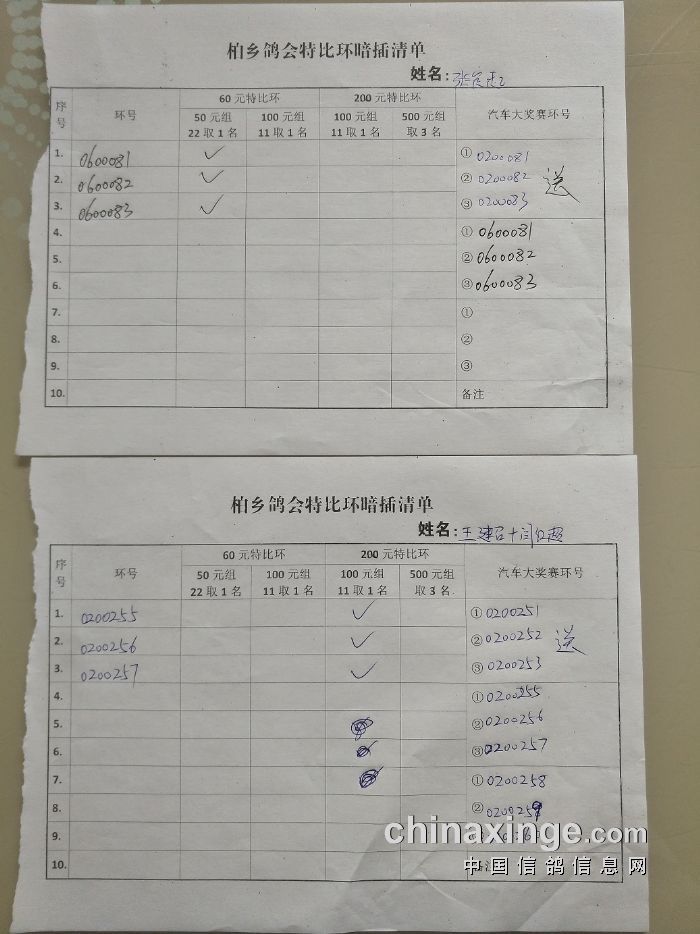 柏乡鸽会特比环暗插清单
姓名：张
序号 环号 60元特比环 200元特比环 汽车大奖赛环号
50元组 22取1名 100元组 11取1名 100元组 11取1名 500元组 取3名
1. 0600081 ✓ ① 0200081
2. 0600082 ✓ ② 0200082 送
3. 0600083 ✓ ③ 0200083
4. ① 0600081
5. ② 0600082
6. ③ 0600083
7. ①
8. ②
9. ③
10. 备注
柏乡鸽会特比环暗插清单
姓名：王建召十闫红超
序号 环号 60元特比环 200元特比环 汽车大奖赛环号
50元组 22取1名 100元组 11取1名 100元组 11取1名 500元组 取3名
1. 0200255 ✓ ① 0200251
2. 0200256 ✓ ② 0200252 送
3. 0200257 ✓ ③ 0200253
4. ① 0200255
5. ② 0200256
6. ③ 0200257
7. ① 0200258
8. ② 0200259
9.
10. 备注
chinaxinge.com
中国信鸽信息网